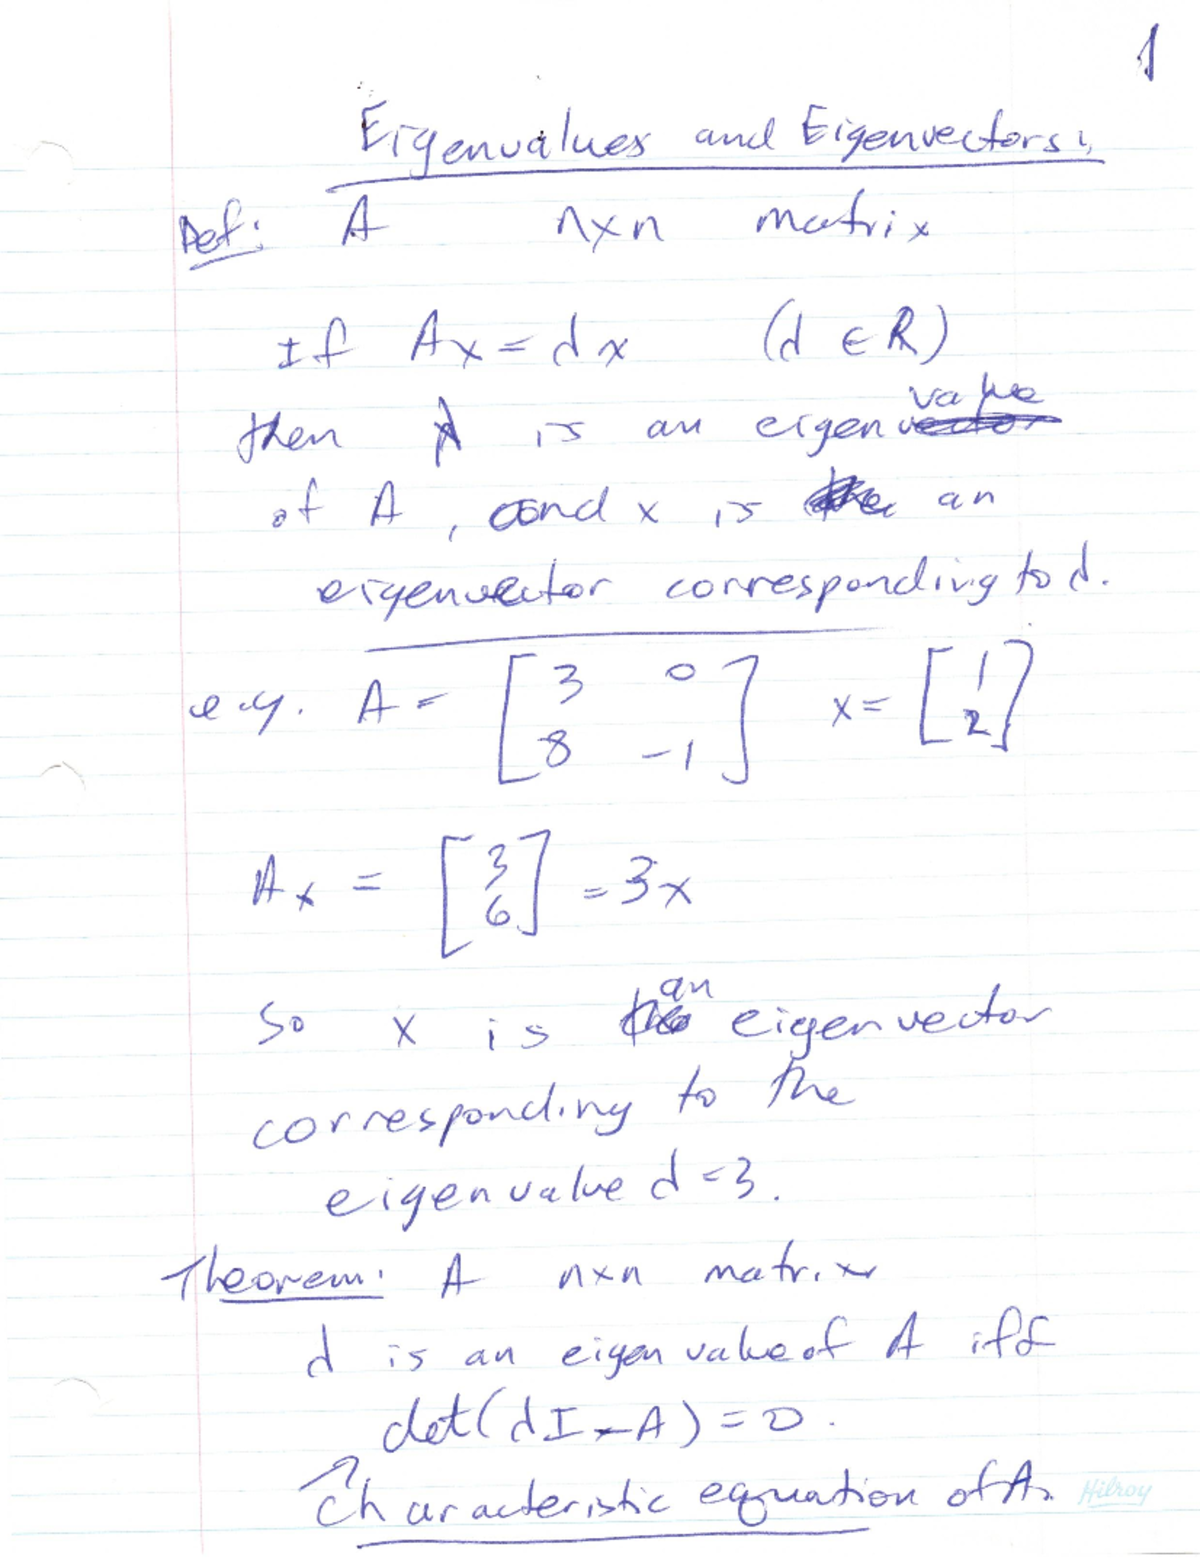 1
Eigenvalues and Eigenvectors:
Def: A n×n matrix
If Ax = dx (d ∈ R)
then d is an eigenvalue
of A, and x is an
eigenvector corresponding to d.
e.g. A = [3 0
8 -1] x = [1
2]
Ax = [3
6] = 3x
So x is an eigenvector
corresponding to the
eigenvalue d = 3.
Theorem: A n×n matrix
d is an eigenvalue of A iff
det(dI - A) = 0.
Characteristic equation of A.
Hilroy